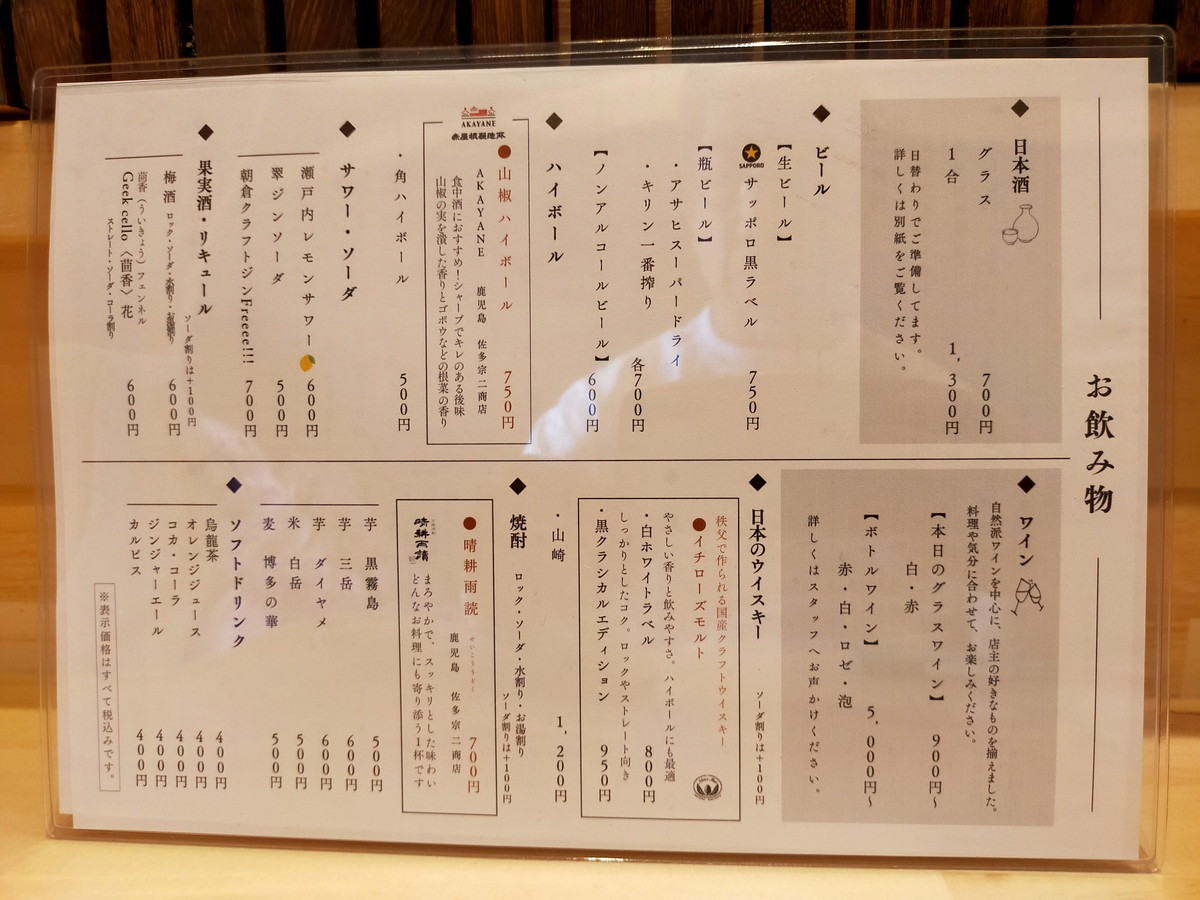 お飲み物
◆ 日本酒
グラス 700円
1合 1,300円
日替わりでご準備してます。
詳しくは別紙をご覧ください。
◆ ビール
【生ビール】
SAPPORO
サッポロ黒ラベル 750円
【瓶ビール】
・アサヒスーパードライ
・キリン一番搾り 各700円
【ノンアルコールビール】 600円
◆ ハイボール
AKAYANE
赤屋根製造所
●山椒ハイボール 750円
AKAYANE 鹿児島 佐多宗二商店
食中酒におすすめ!シャープでキレのある後味
山椒の実を潰した香りとゴボウなどの根菜の香り
・角ハイボール 500円
◆ サワー・ソーダ
瀬戸内レモンサワー 600円
翠ジンソーダ 500円
朝倉クラフトジンFreeee!!! 700円
◆ 果実酒・リキュール
ソーダ割りは+100円
梅酒 ロック・ソーダ・水割り・お湯割り 600円
茴香(ういきょう)フェンネル
Geek cello〈茴香〉花 600円
ストレート・ソーダ・コーラ割り
◆ ワイン
自然派ワインを中心に、店主の好きなものを揃えました。
料理や気分に合わせて、お楽しみください。
【本日のグラスワイン】 900円~
白・赤
【ボトルワイン】 5,000円~
赤・白・ロゼ・泡
詳しくはスタッフへお声かけください。
◆ 日本のウイスキー ソーダ割りは+100円
秩父で作られる国産クラフトウイスキー
●イチローズモルト
やさしい香りと飲みやすさ。ハイボールにも最適
・白ホワイトラベル 800円
しっかりとしたコク。ロックやストレート向き
・黒クラシカルエディション 950円
・山崎 1,200円
◆ 焼酎 ロック・ソーダ・水割り・お湯割り
ソーダ割りは+100円
●晴耕雨読 700円
せいこううどく
鹿児島 佐多宗二商店
晴耕雨読
まろやかで、スッキリとした味わい
どんなお料理にも寄り添う1杯です
芋 黒霧島 500円
芋 三岳 600円
芋 ダイヤメ 600円
米 白岳 500円
麦 博多の華 500円
◆ ソフトドリンク
烏龍茶 400円
オレンジジュース 400円
コカ・コーラ 400円
ジンジャーエール 400円
カルピス 400円
※表示価格はすべて税込みです。